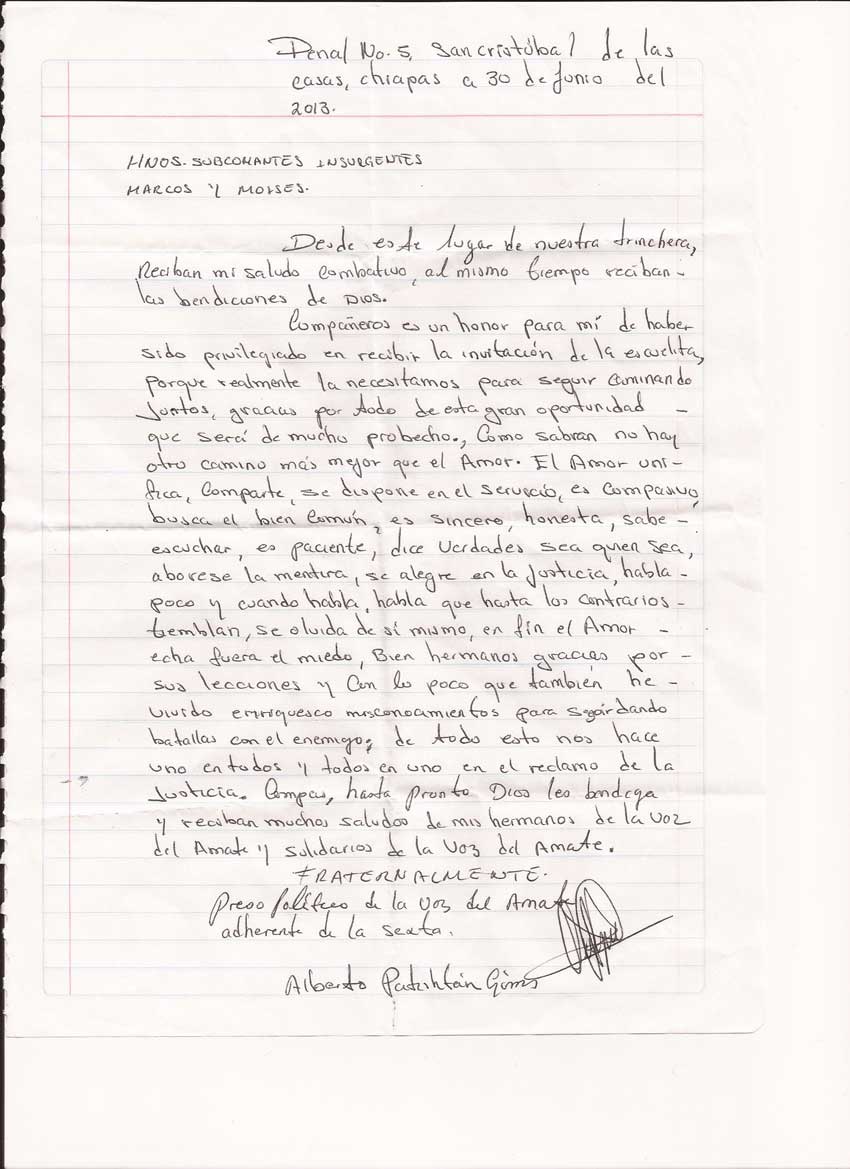 Penal No. 5, San cristóbal de las
casas, chiapas a 30 de Junio del
2013.
HNOS. SUBCOMANTES INSURGENTES
MARCOS Y MOISES.
Desde este lugar de nuestra trinchera,
Reciban mi saludo Combativo, al mismo tiempo reciban-
las bendiciones de DIOS.
Compañeros es un honor para mí de haber
sido privilegiado en recibir la invitación de la escuelita,
porque realmente la necesitamos para seguir Caminando
Juntos, gracias por todo de esta gran oportunidad -
que será de mucho probecho., Como sabran no hay
otro camino más mejor que el Amor. El Amor uni-
fica, Comparte, se dispone en el servicio, es Compasivo,
busca el bien Común, es sincero, honesta, sabe-
escuchar, es paciente, dice Verdades sea quien sea,
aborese la mentira, se alegre en la Justicia, habla-
poco y cuando habla, habla que hasta los Contrarios-
tiemblán, se olvida de sí mismo, en fin el Amor -
echa fuera el miedo, Bien hermanos gracias por-
sus lecciones y Con lo poco que también he-
vivido enriquesco mis conocamientos para seguir dando
batallas con el enemigo; de todo esto nos hace
uno en todos y todos en uno en el reclamo de la
Justicia. Compas, hasta pronto Dios les bendiga
y reciban muchos saludos de mis hermanos de la voz
del Amate y solidarios de la Voz del Amate.
FRATERNALMENTE.
Preso Político de la Voz del Amate
adherente de la sexta.
Alberto Patishtán Gómez